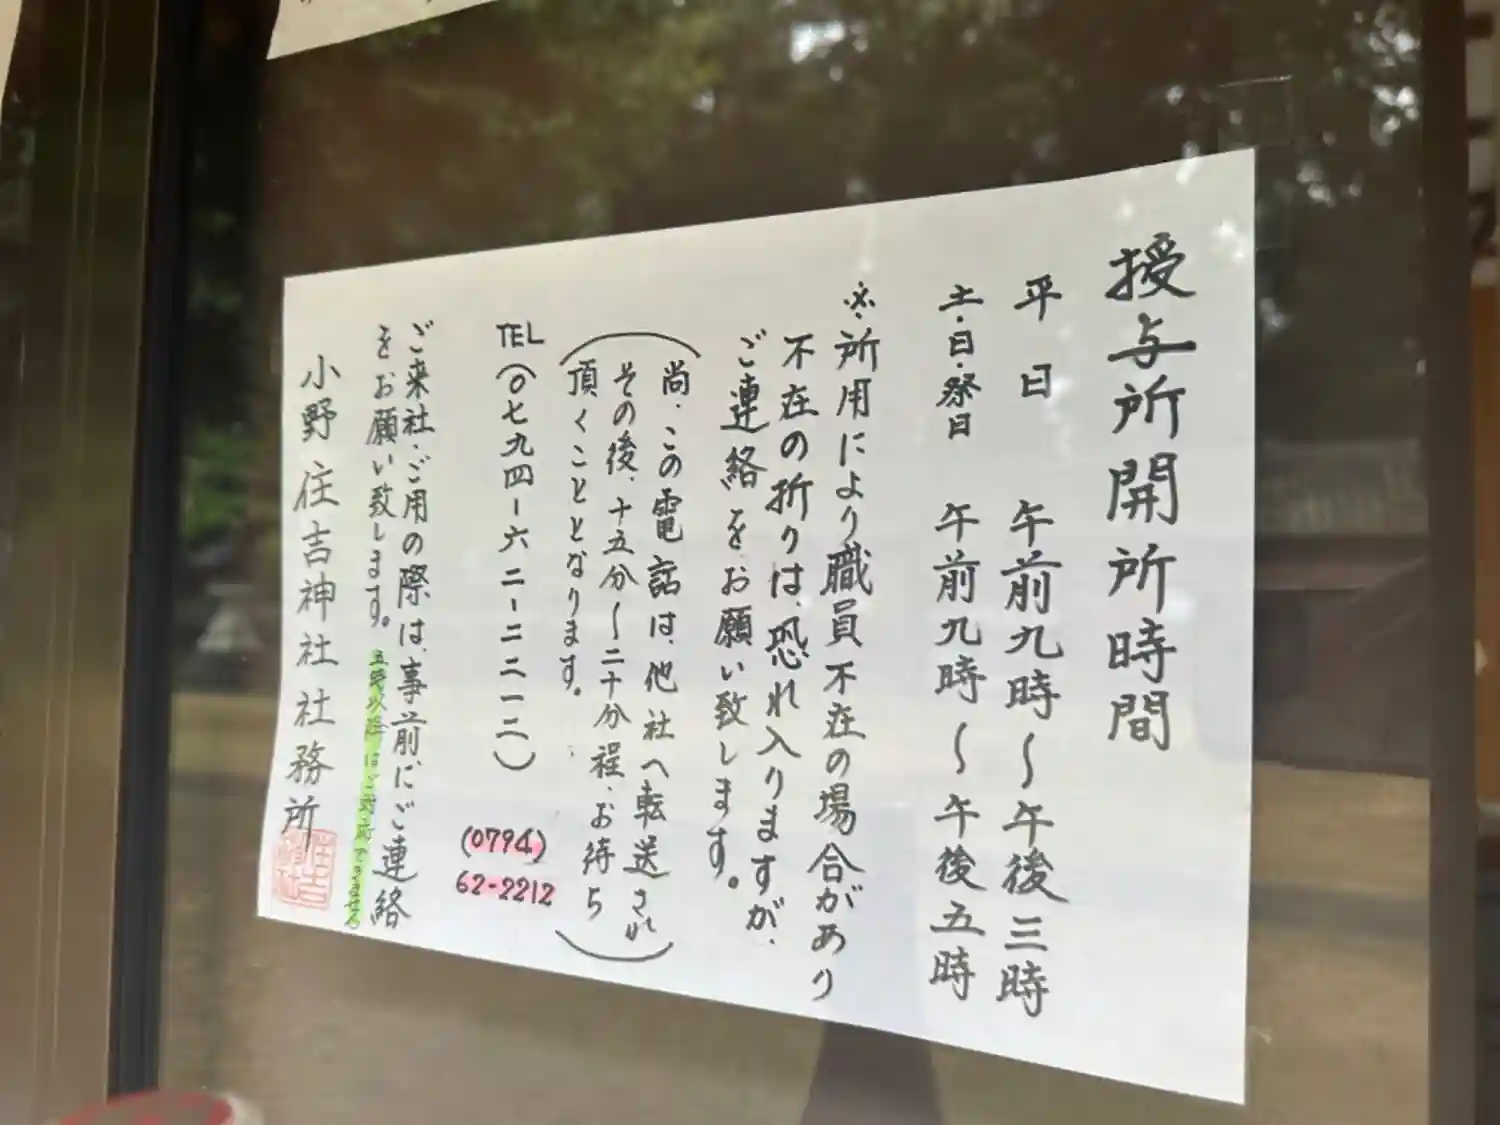 授与所開所時間
平日 午前九時〜午後三時
土・日・祭日 午前九時〜午後五時
※所用により職員不在の場合があり
不在の折りは、恐れ入りますが、
ご連絡をお願い致します。
(尚、この電話は、他社へ転送され
その後、十五分〜二十分程、お待ち
頂くこととなります。)
TEL(〇七九四-六二-二二一二)
(0794)
62-2212
ご来社、ご用の際は、事前にご連絡
をお願い致します。五時以降はご対応できません
小野住吉神社社務所